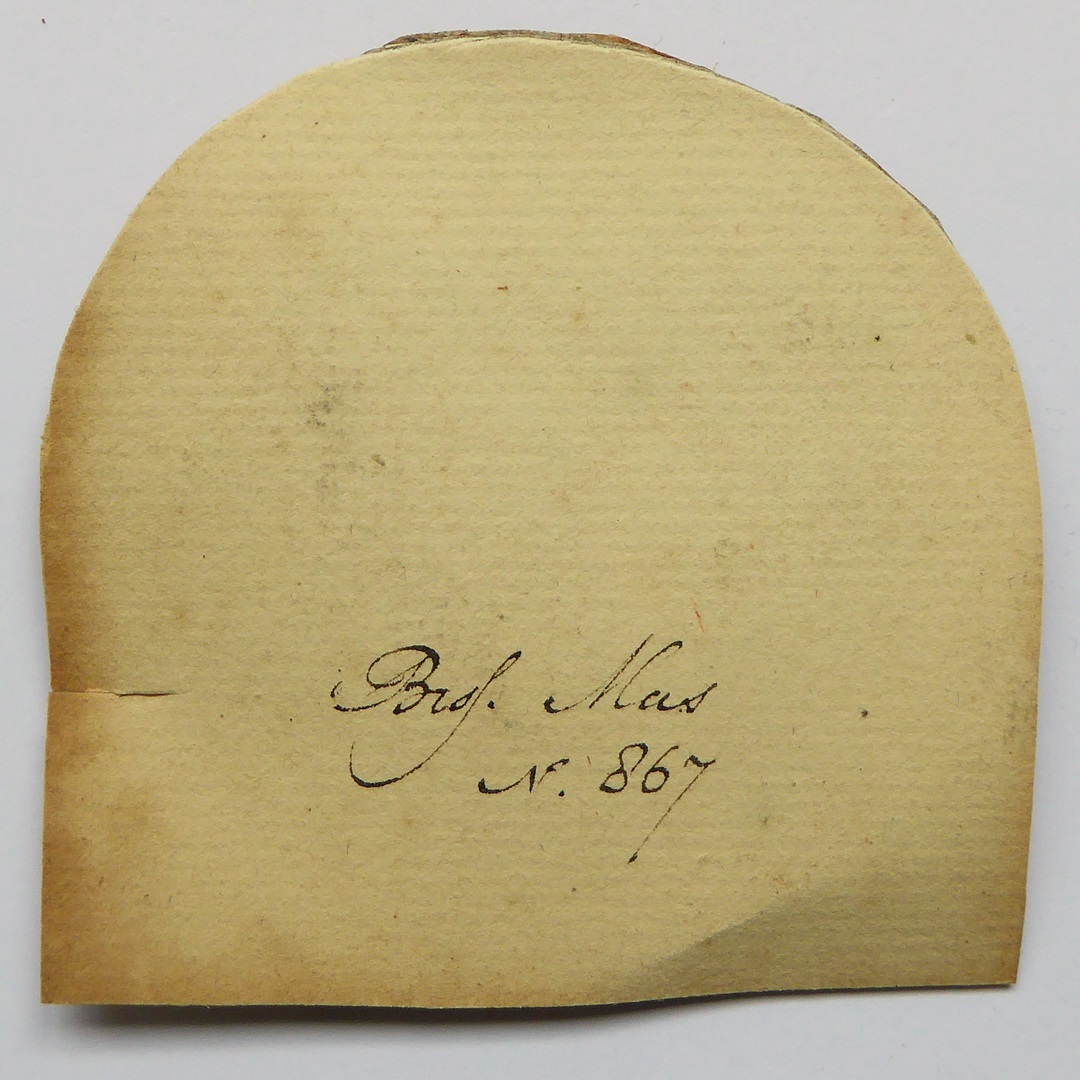 Bros. Mus
N. 867